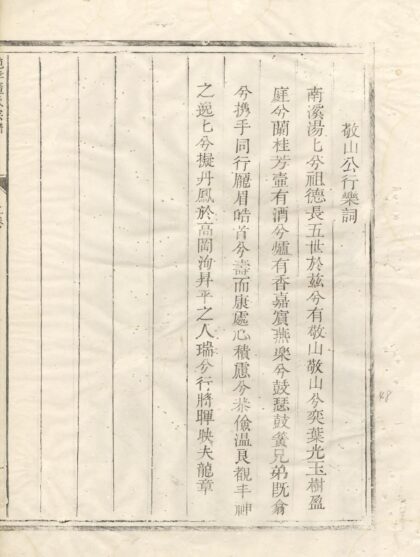 敬山公行樂詞
南溪湯匕兮祖德長五世於茲兮有敬山敬山兮奕葉光玉樹盈
庭兮蘭桂芳壺有酒兮爐有香嘉賓燕樂兮鼓瑟鼓簧兄弟既翕
兮携手同行龐眉皓首兮壽而康處心積慮兮恭儉溫良觀丰神
之逸匕兮擬丹鳳於高岡洵昇平之人瑞兮行將暉映夫龍章
48